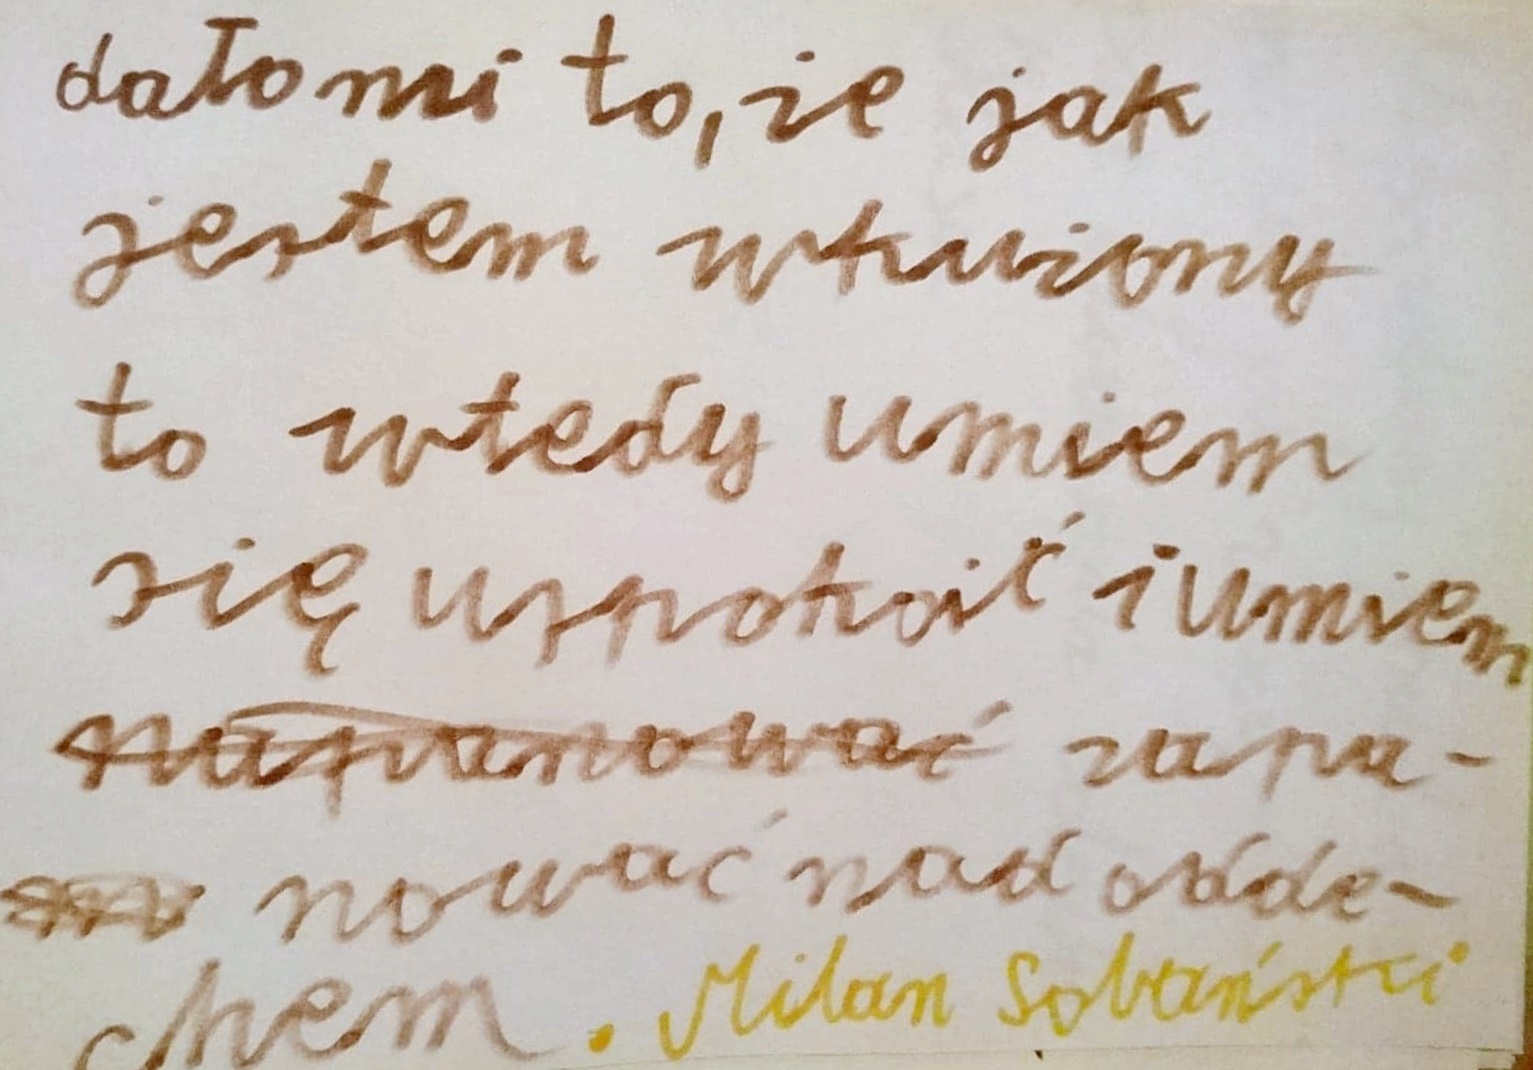 dało mi to, że jak
jestem wkużony
to wtedy umiem
się uspokoić i umiem
napanować zapa-
nować nad odde-
chem. Milan Sobański